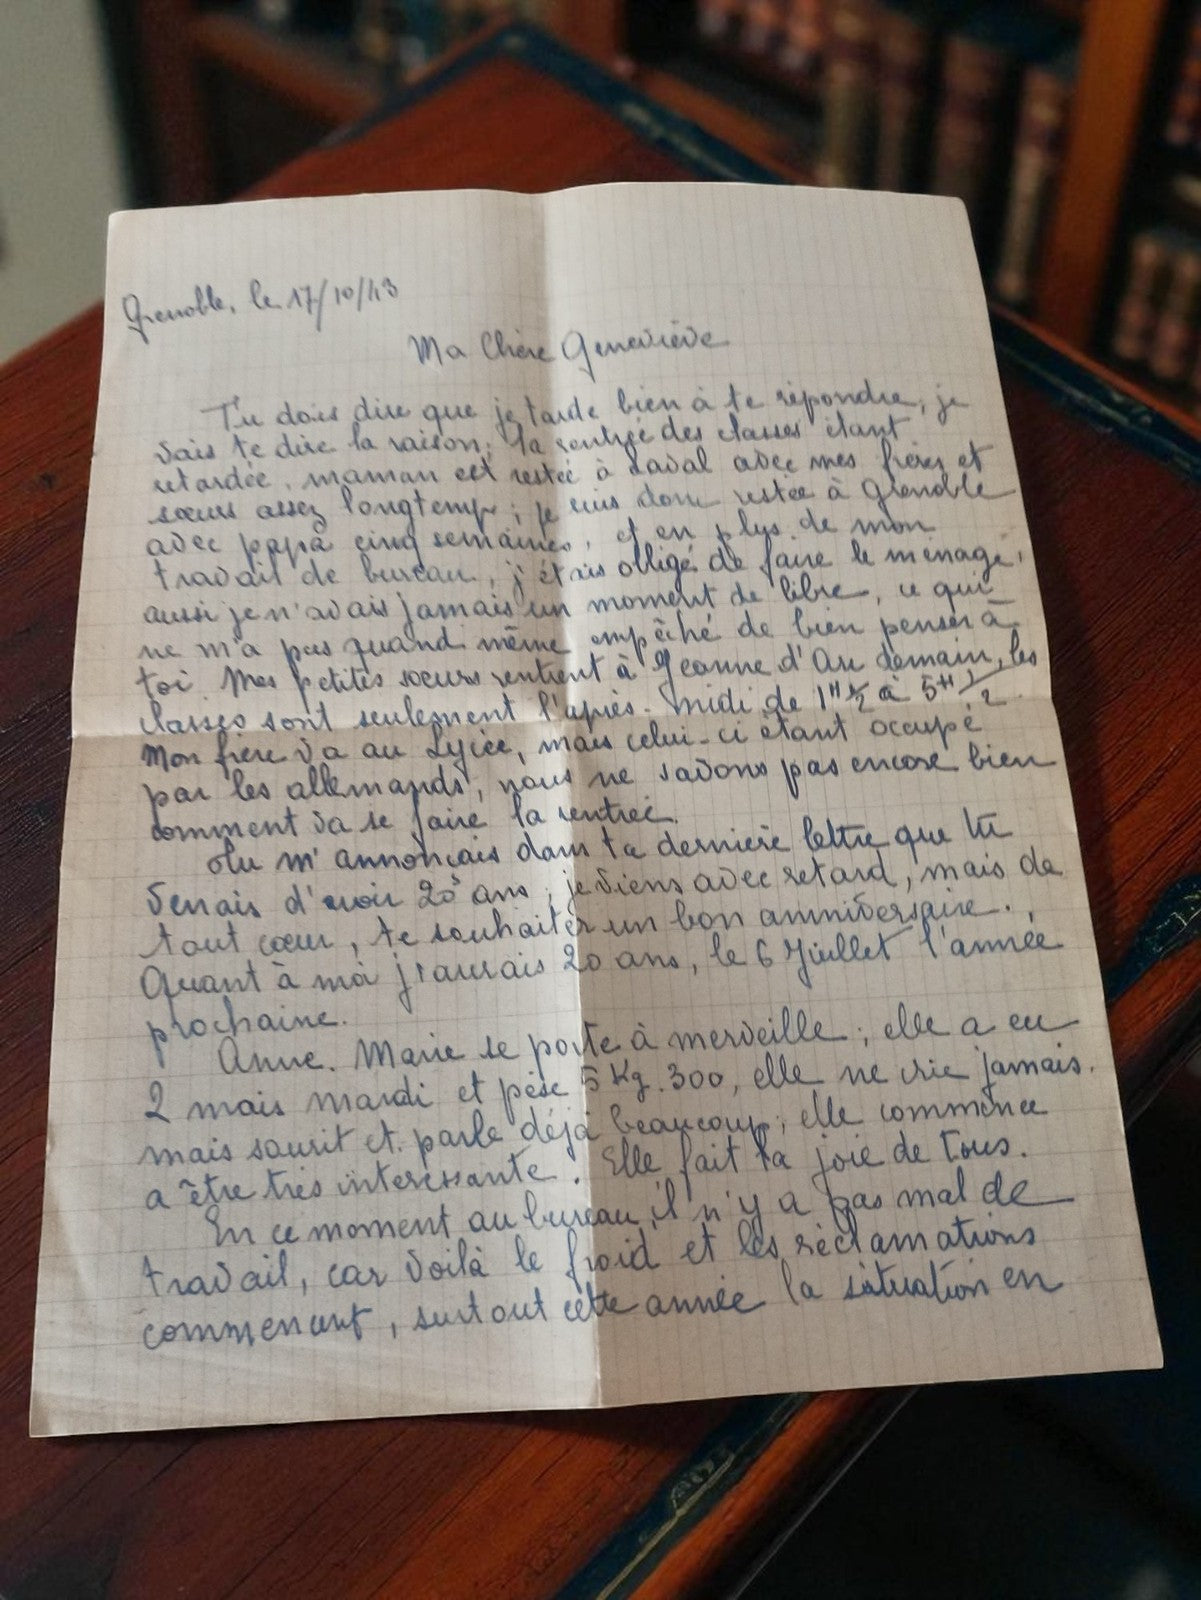 Grenoble, le 17/10/43
Ma Chère Geneviève
Tu dois dire que je tarde bien à te répondre, je
vais te dire la raison; la rentrée des classes étant
retardée, maman est restée à Laval avec mes frères et
sœurs assez longtemps; je suis donc restée à Grenoble
avec papa cinq semaines, et en plus de mon
travail de bureau, j'étais obligé de faire le ménage,
aussi je n'avais jamais un moment de libre, ce qui
ne m'a pas quand même empêché de bien penser à
toi. Mes petites sœurs rentrent à Jeanne d'Arc demain, les
classes sont seulement l'après-midi de 1H 1/2 à 5H 1/2.
Mon frère va au Lycée, mais celui-ci étant occupé
par les allemands, nous ne savons pas encore bien
comment va se faire la rentrée.
Tu m'annonçais dans ta dernière lettre que tu
venais d'avoir 20 ans; je viens avec retard, mais de
tout cœur, te souhaiter un bon anniversaire.
Quant à moi j'aurais 20 ans, le 6 Juillet l'année
prochaine.
Anne-Marie se porte à merveille; elle a eu
2 mois mardi et pèse 5 Kg.300, elle ne crie jamais.
mais sourit et parle déjà beaucoup; elle commence
a être très intéressante. Elle fait la joie de tous.
En ce moment au bureau, il n'y a pas mal de
travail, car voilà le froid et les réclamations
commencent, surtout cette année la situation en